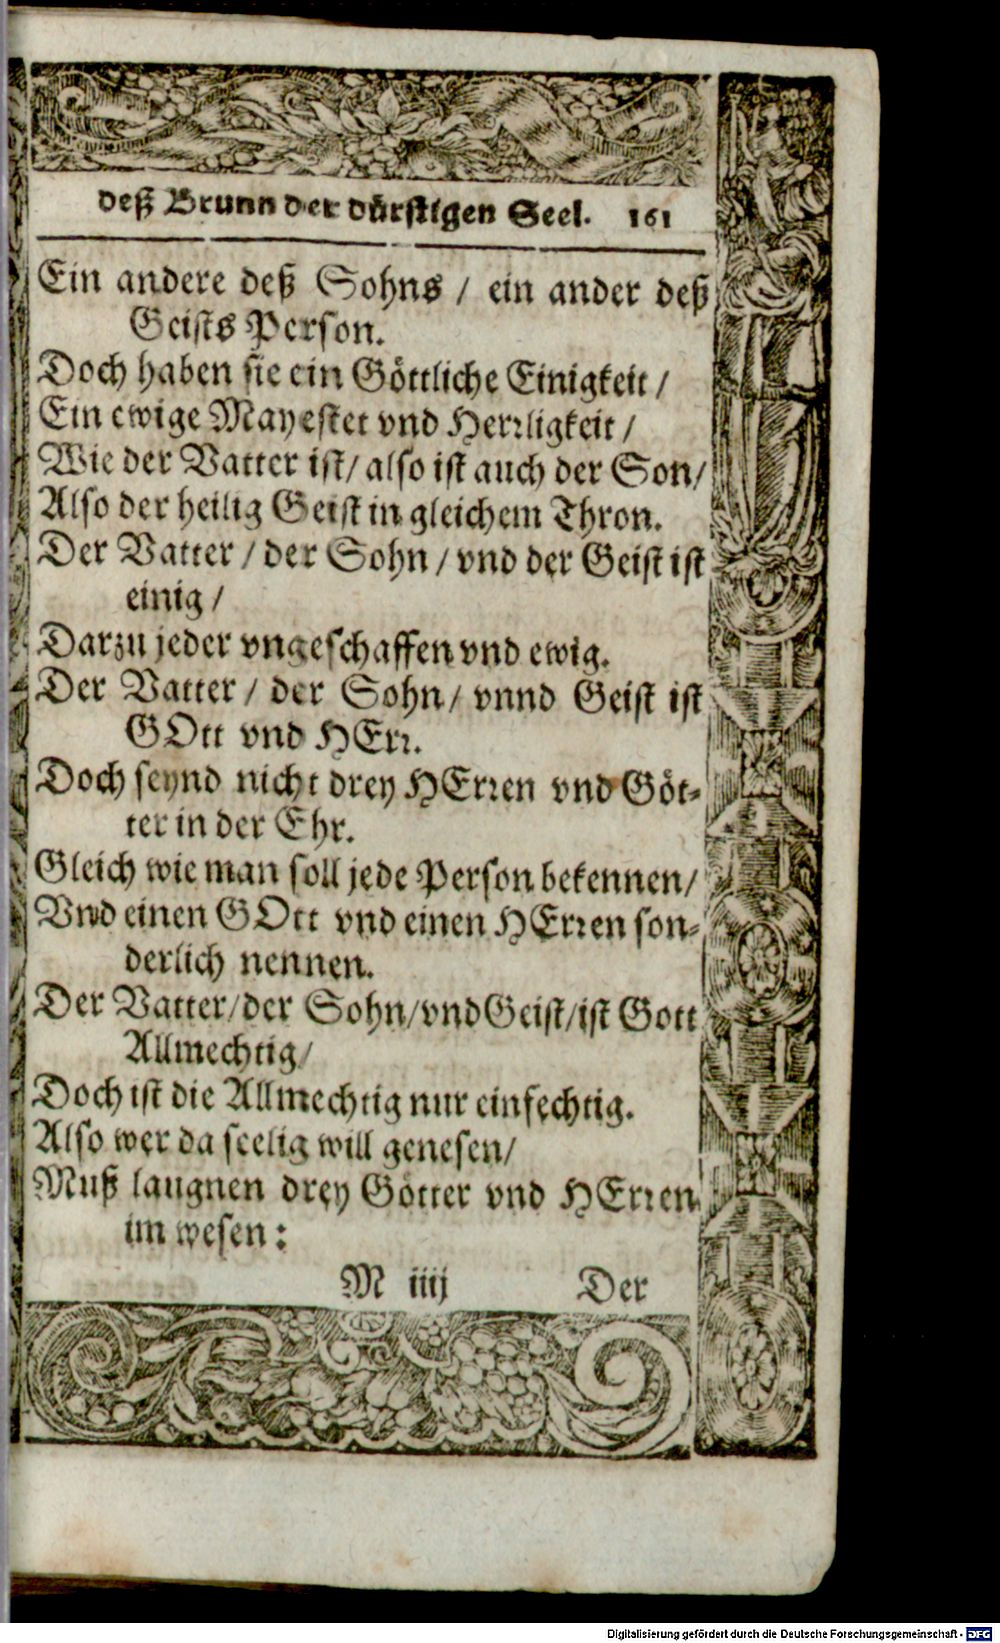 deß Brunn der dürstigen Seel. 161
Ein andere deß Sohns / ein ander deß
Geists Person.
Doch haben sie ein Göttliche Einigkeit /
Ein ewige Mayestet vnd Herrligkeit /
Wie der Vatter ist / also ist auch der Son /
Also der heilig Geist in gleichem Thron.
Der Vatter / der Sohn / vnd der Geist ist
einig /
Darzu jeder vngeschaffen vnd ewig.
Der Vatter / der Sohn / vnnd Geist ist
GOtt vnd HErr.
Doch seynd nicht drey HErren vnd Göt-
ter in der Ehr.
Gleich wie man soll jede Person bekennen /
Vnd einen GOtt vnd einen HErren son-
derlich nennen.
Der Vatter / der Sohn / vnd Geist / ist Gott
Allmechtig /
Doch ist die Allmechtig nur einfechtig.
Also wer da seelig will genesen /
Muß laugnen drey Götter vnd HErren
im wesen :
M iiij Der
Digitalisierung gefördert durch die Deutsche Forschungsgemeinschaft - DFG